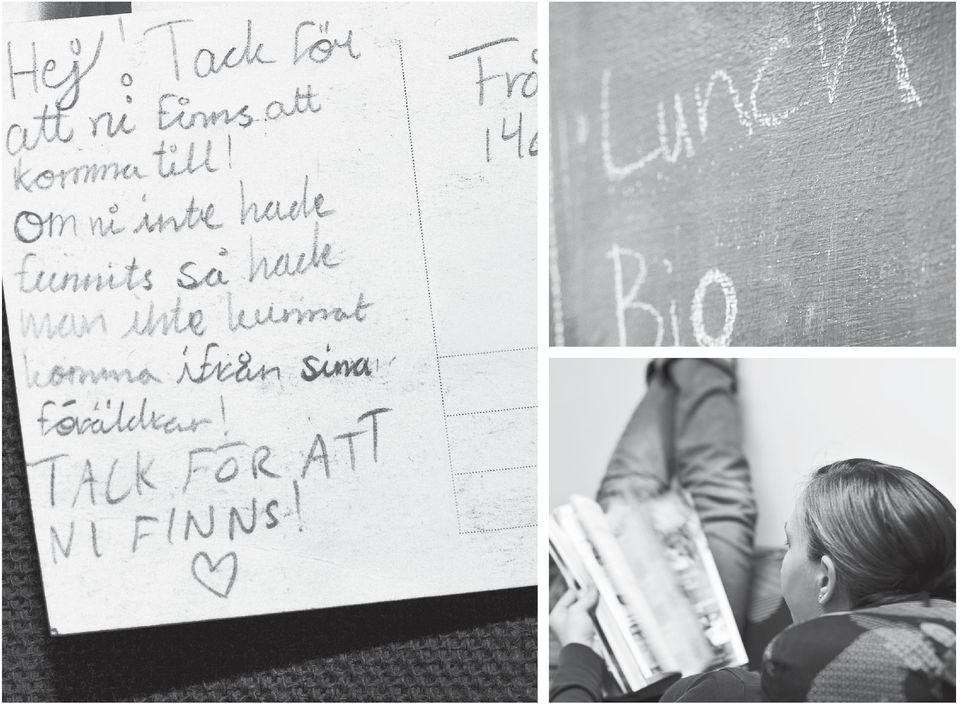 Hej! Tack för
att ni finns att
komma till!
Om ni inte hade
funnits så hade
man inte kunnat
komma ifrån sina
föräldrar!
TACK FÖR ATT
NI FINNS!
Frå
Lunch
Bio